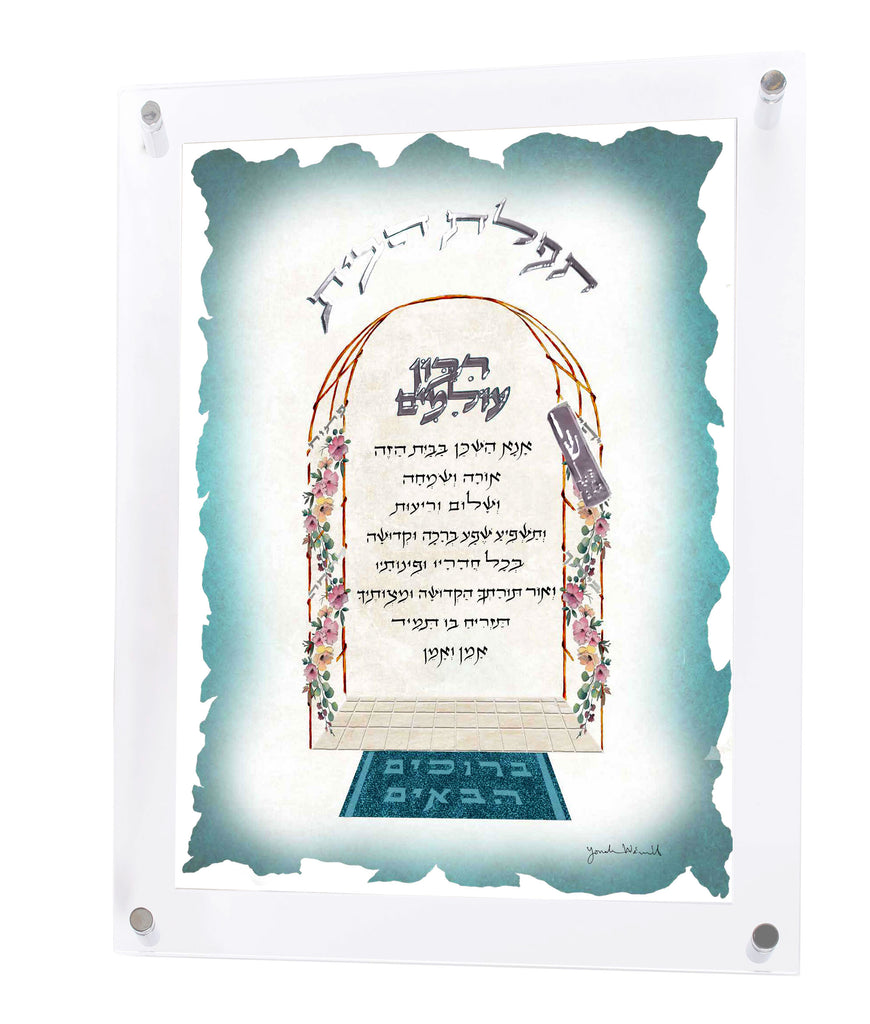 תפלת הבית
רבון
עולמים
אנא השכן בבית הזה
אורה ושמחה
ושלום וריעות
ותשפיע שפע ברכה וקדושה
בכל חדריו ופינותיו
ואור תורתך הקדושה ומצותיך
תזריח בו תמיד
אמן ואמן
ש
ברוכים
הבאים
Yonah Weinrib